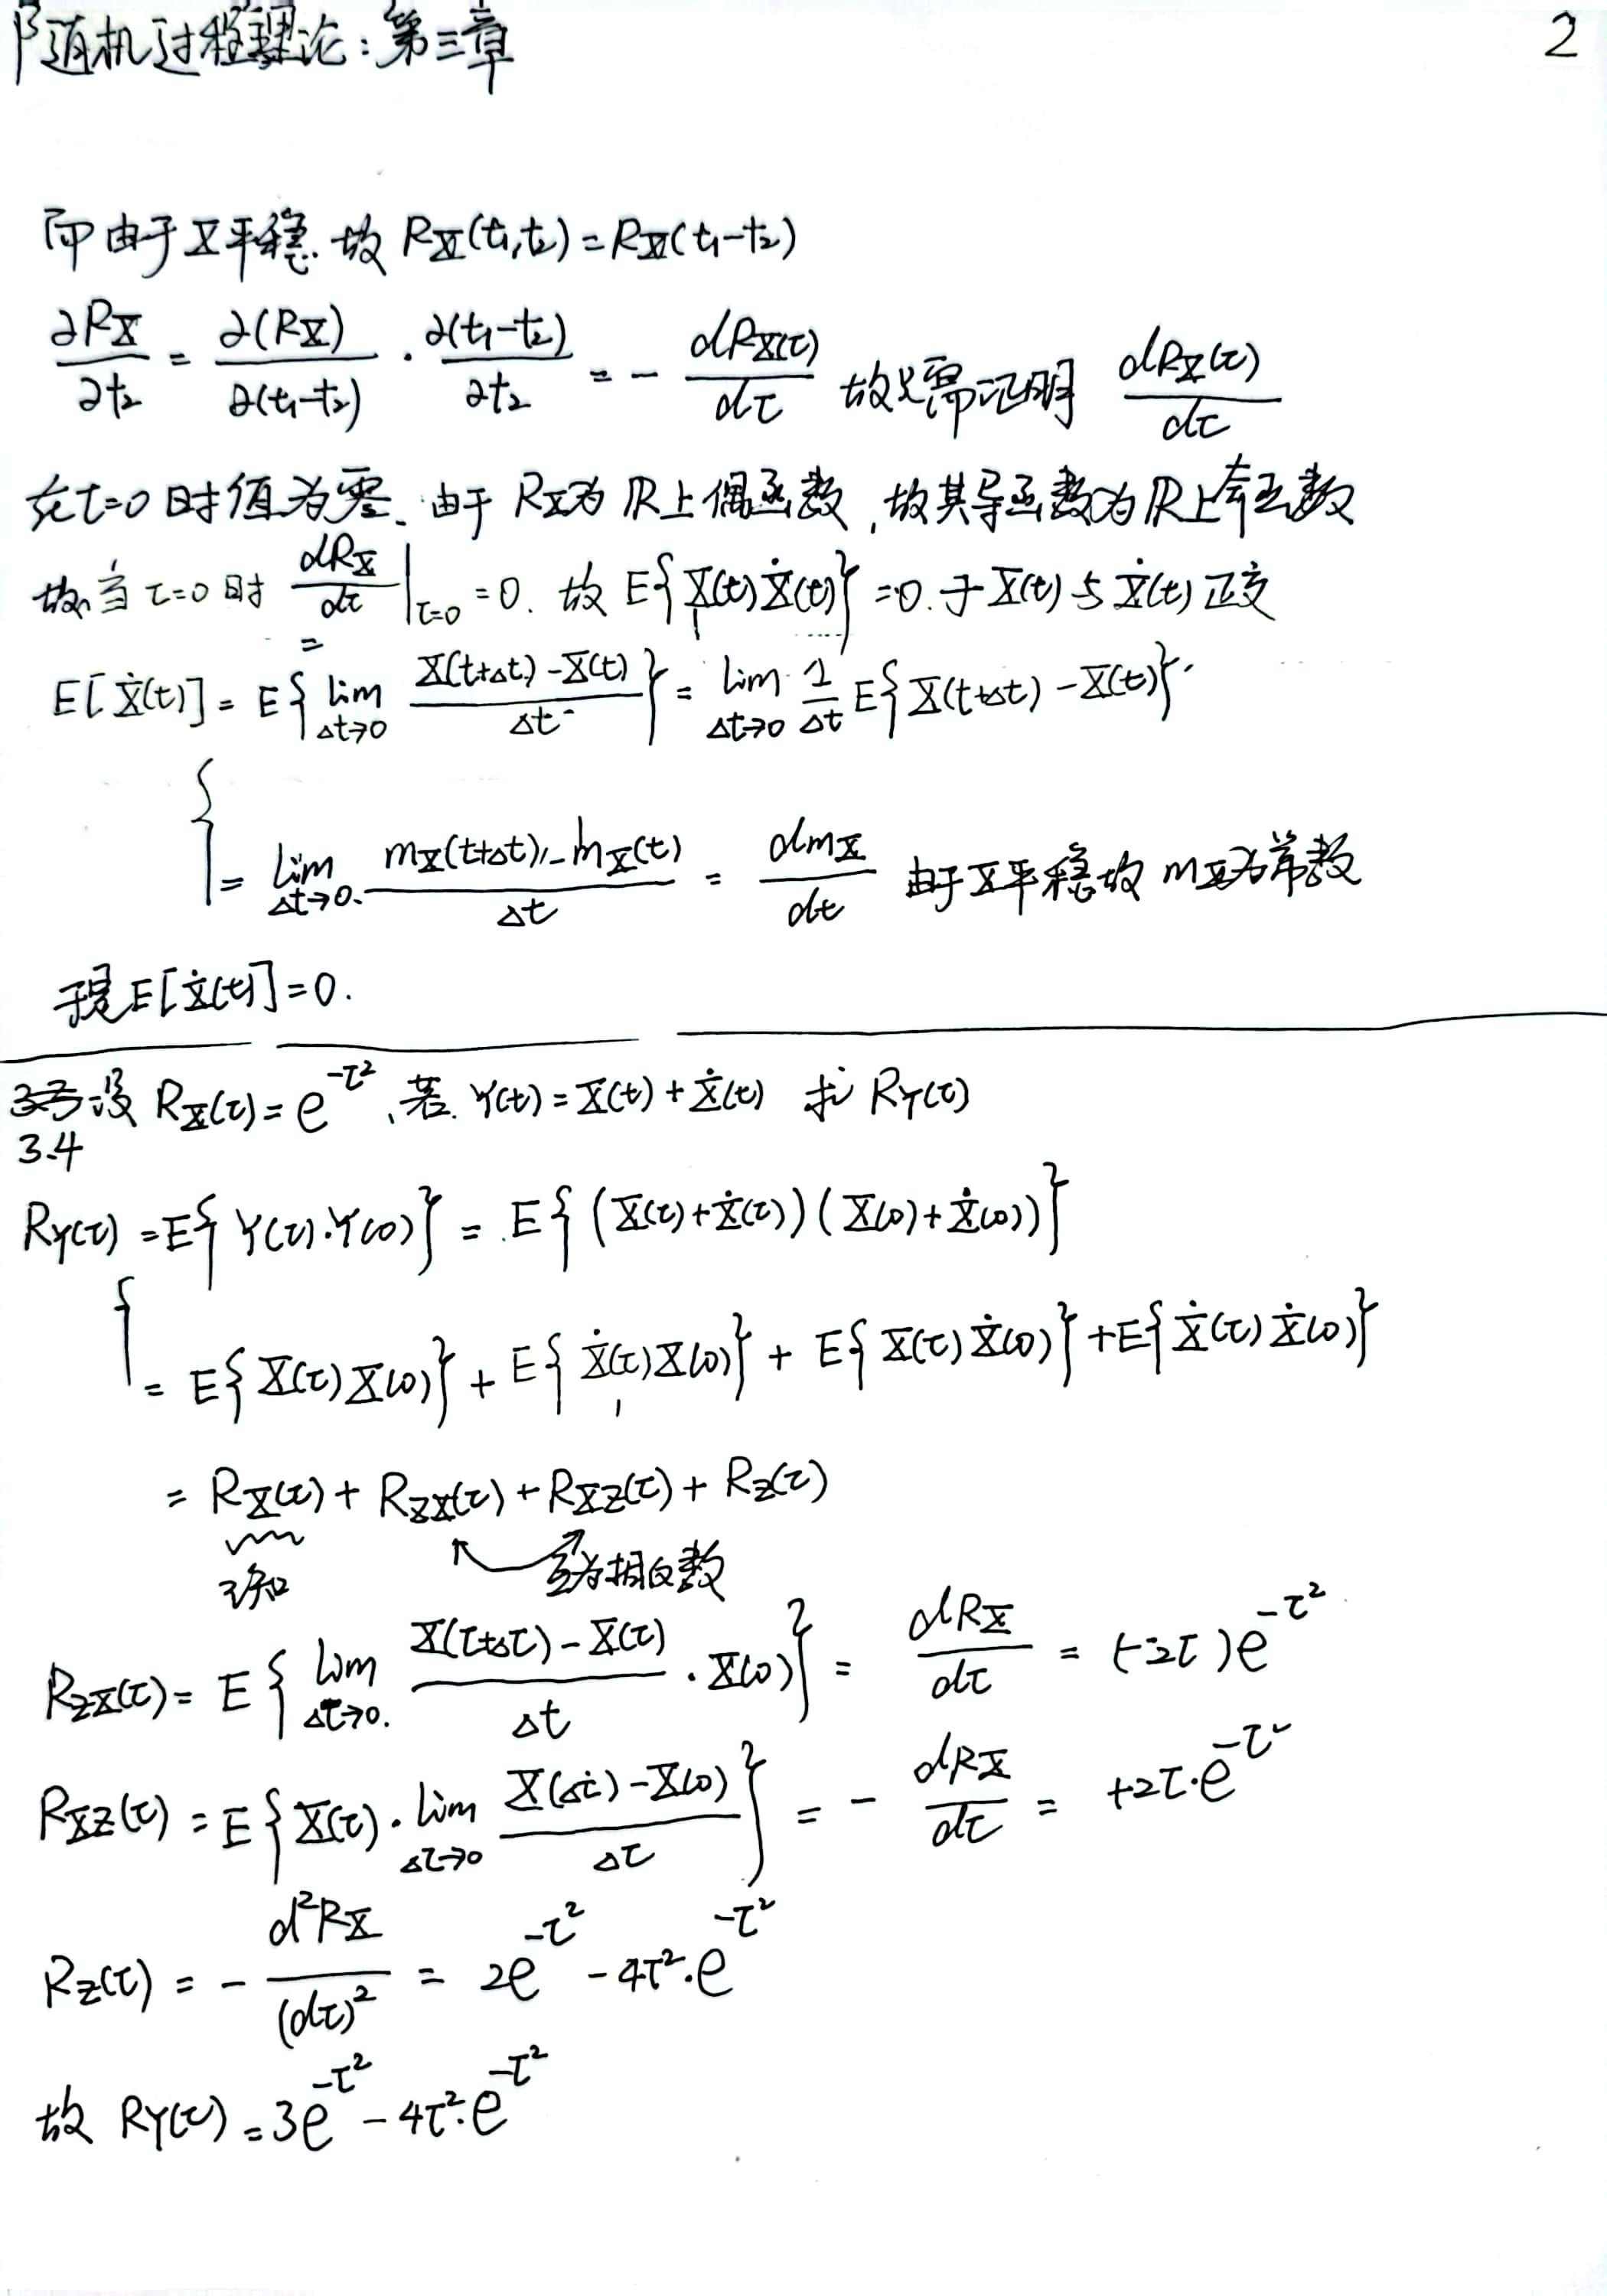 随机过程理论:第三章 2
而由于X平稳.故 R_X(t₁,t₂)=R_X(t₁-t₂)
∂R_X/∂t₂ = ∂(R_X)/∂(t₁-t₂) · ∂(t₁-t₂)/∂t₂ = - dR_X(τ)/dτ 故只需证明 dR_X(τ)/dτ
在τ=0时值为零. 由于 R_X为 R上偶函数,故其导函数为R上奇函数
故当 τ=0时 dR_X/dτ |τ=0 = 0. 故 E{X(t)Ẋ(t)} =0.于X(t)与Ẋ(t)正交
E[Ẋ(t)] = E{ lim Δt→0 (X(t+Δt)-X(t))/Δt } = lim Δt→0 1/Δt E{X(t+Δt)-X(t)}
= lim Δt→0 (m_X(t+Δt)-m_X(t))/Δt = dm_X/dt 由于X平稳故 m_X为常数
于是E[Ẋ(t)]=0.
设 R_X(τ)= e^(-τ²),若 Y(t)=X(t)+Ẋ(t) 求 R_Y(τ)
3.4
R_Y(τ) =E{Y(τ)·Y(0)} = E{(X(τ)+Ẋ(τ))(X(0)+Ẋ(0))}
= E{X(τ)X(0)} + E{Ẋ(τ)X(0)} + E{X(τ)Ẋ(0)} +E{Ẋ(τ)Ẋ(0)}
= R_X(τ) + R_ZX(τ) + R_XZ(τ) + R_Z(τ)
已知 互为相反数
R_ZX(τ) = E{ lim Δτ→0. (X(τ+Δτ)-X(τ))/Δt · X(0)} = dR_X/dτ = (-2τ)e^(-τ²)
R_XZ(τ) = E{X(τ)· lim Δτ→0 (X(Δτ)-X(0))/Δτ} = - dR_X/dτ = +2τ·e^(-τ²)
R_Z(τ) = - d²R_X/(dτ)² = 2e^(-τ²) - 4τ²·e^(-τ²)
故 R_Y(τ) = 3e^(-τ²) - 4τ²·e^(-τ²)